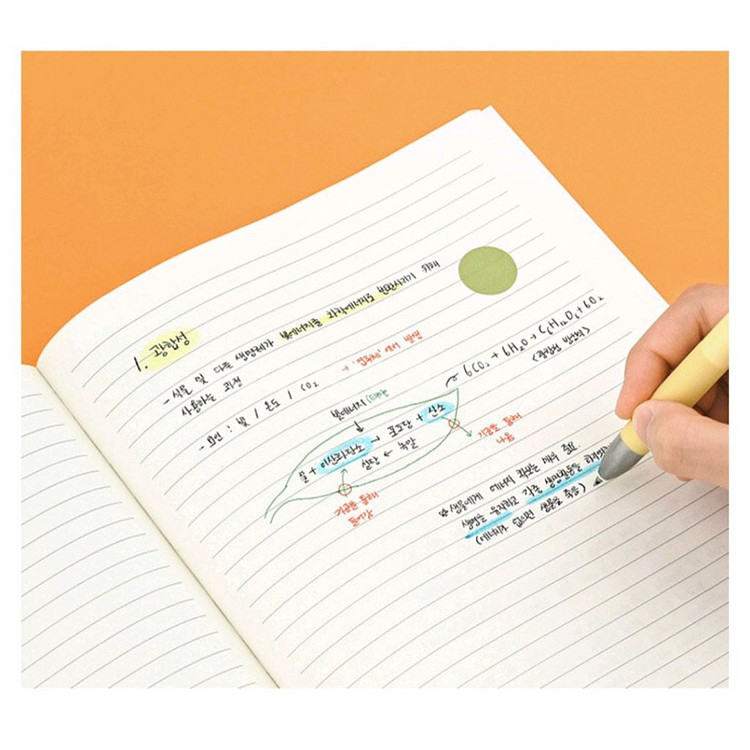 1. 광합성
- 식물 및 다른 생명체가 빛에너지를 화학에너지로 변환시키기 위해
사용하는 과정 → '엽록체' 에서 발생
- 요인 : 빛 / 온도 / CO₂
6CO₂ + 6H₂O → C₆H₁₂O₆ + 6O₂
<광합성 반응식>
빛에너지
물 + 이산화탄소 → 포도당 + 산소
기공을 통해
나옴
기공을 통해
들어감
☆ 생물에게 에너지 확보는 매우 중요
생명을 유지하고 각종 생명활동을
(에너지가 없으면 생물은 죽음)